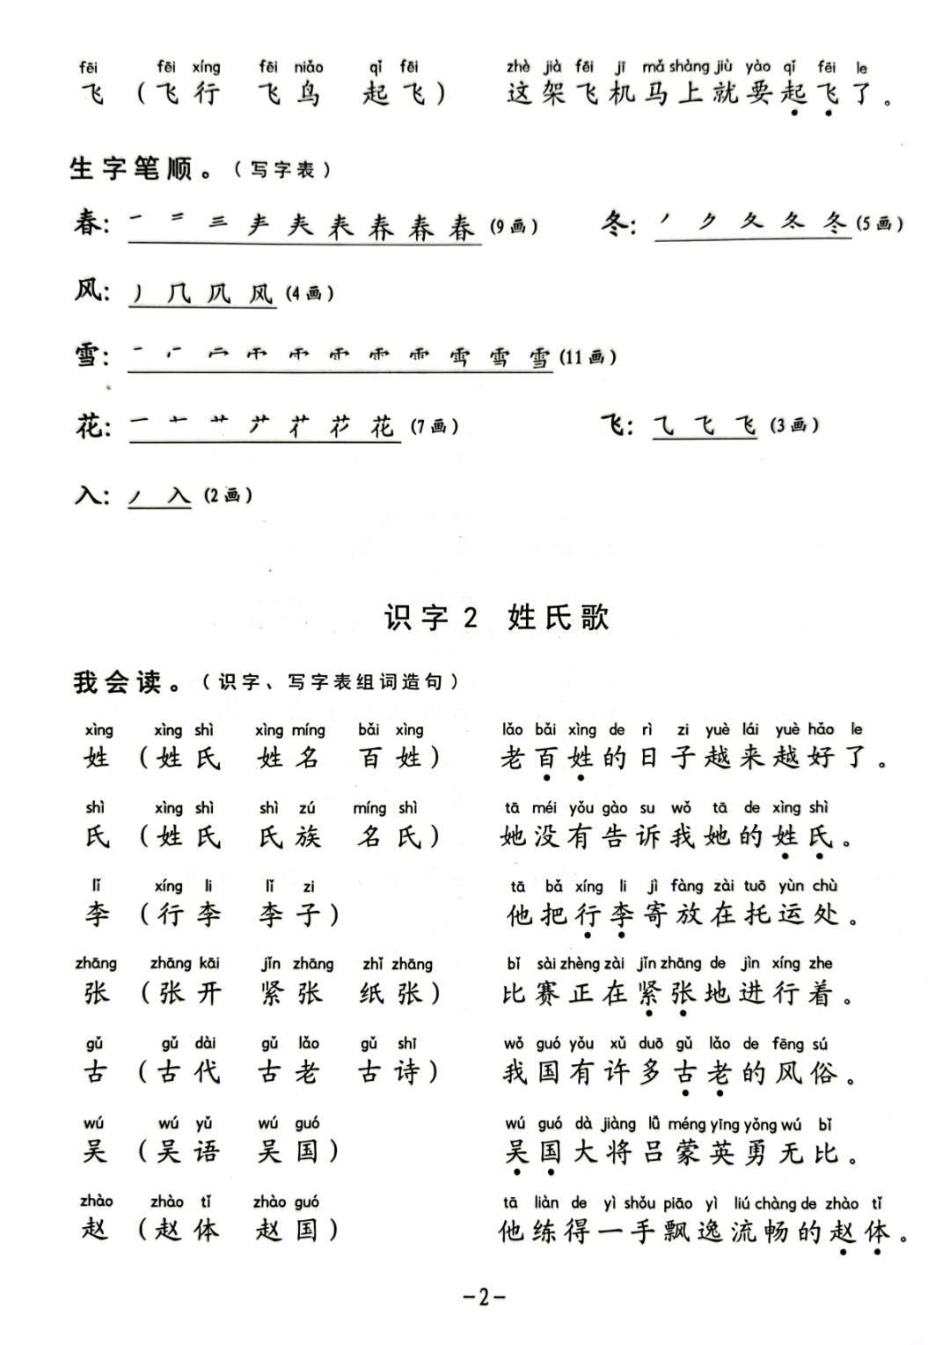 fēi fēi xíng fēi niǎo qǐ fēi zhè jià fēi jī mǎ shàng jiù yào qǐ fēi le
飞 （飞行 飞鸟 起飞） 这架飞机马上就要起飞了。
生字笔顺。（写字表）
春: 一 二 三 𡗗 夫 表 春 春 春 (9画) 冬: 丿 夕 夂 冬 冬 (5画)
风: 丿 几 风 风 (4画)
雪: (11画)
花: 一 十 艹 花 (7画) 飞: 乁 飞 飞 (3画)
入: 丿 入 (2画)
识字2 姓氏歌
我会读。（识字、写字表组词造句）
xìng xìng shì xìng míng bǎi xìng lǎo bǎi xìng de rì zi yuè lái yuè hǎo le
姓 （姓氏 姓名 百姓） 老百姓的日子越来越好了。
shì xìng shì shì zú míng shì tā méi yǒu gào su wǒ tā de xìng shì
氏 （姓氏 氏族 名氏） 她没有告诉我她的姓氏。
lǐ xíng li lǐ zi tā bǎ xíng li jì fàng zài tuō yùn chù
李 （行李 李子） 他把行李寄放在托运处。
zhāng zhāng kāi jǐn zhāng zhǐ zhāng bǐ sài zhèng zài jǐn zhāng de jìn xíng zhe
张 （张开 紧张 纸张） 比赛正在紧张地进行着。
gǔ gǔ dài gǔ lǎo gǔ shī wǒ guó yǒu xǔ duō gǔ lǎo de fēng sú
古 （古代 古老 古诗） 我国有许多古老的风俗。
wú wú yǔ wú guó wú guó dà jiàng lǚ méng yīng yǒng wú bǐ
吴 （吴语 吴国） 吴国大将吕蒙英勇无比。
zhào zhào tǐ zhào guó tā liàn de yì shǒu piāo yì liú chàng de zhào tǐ
赵 （赵体 赵国） 他练得一手飘逸流畅的赵体。
-2-